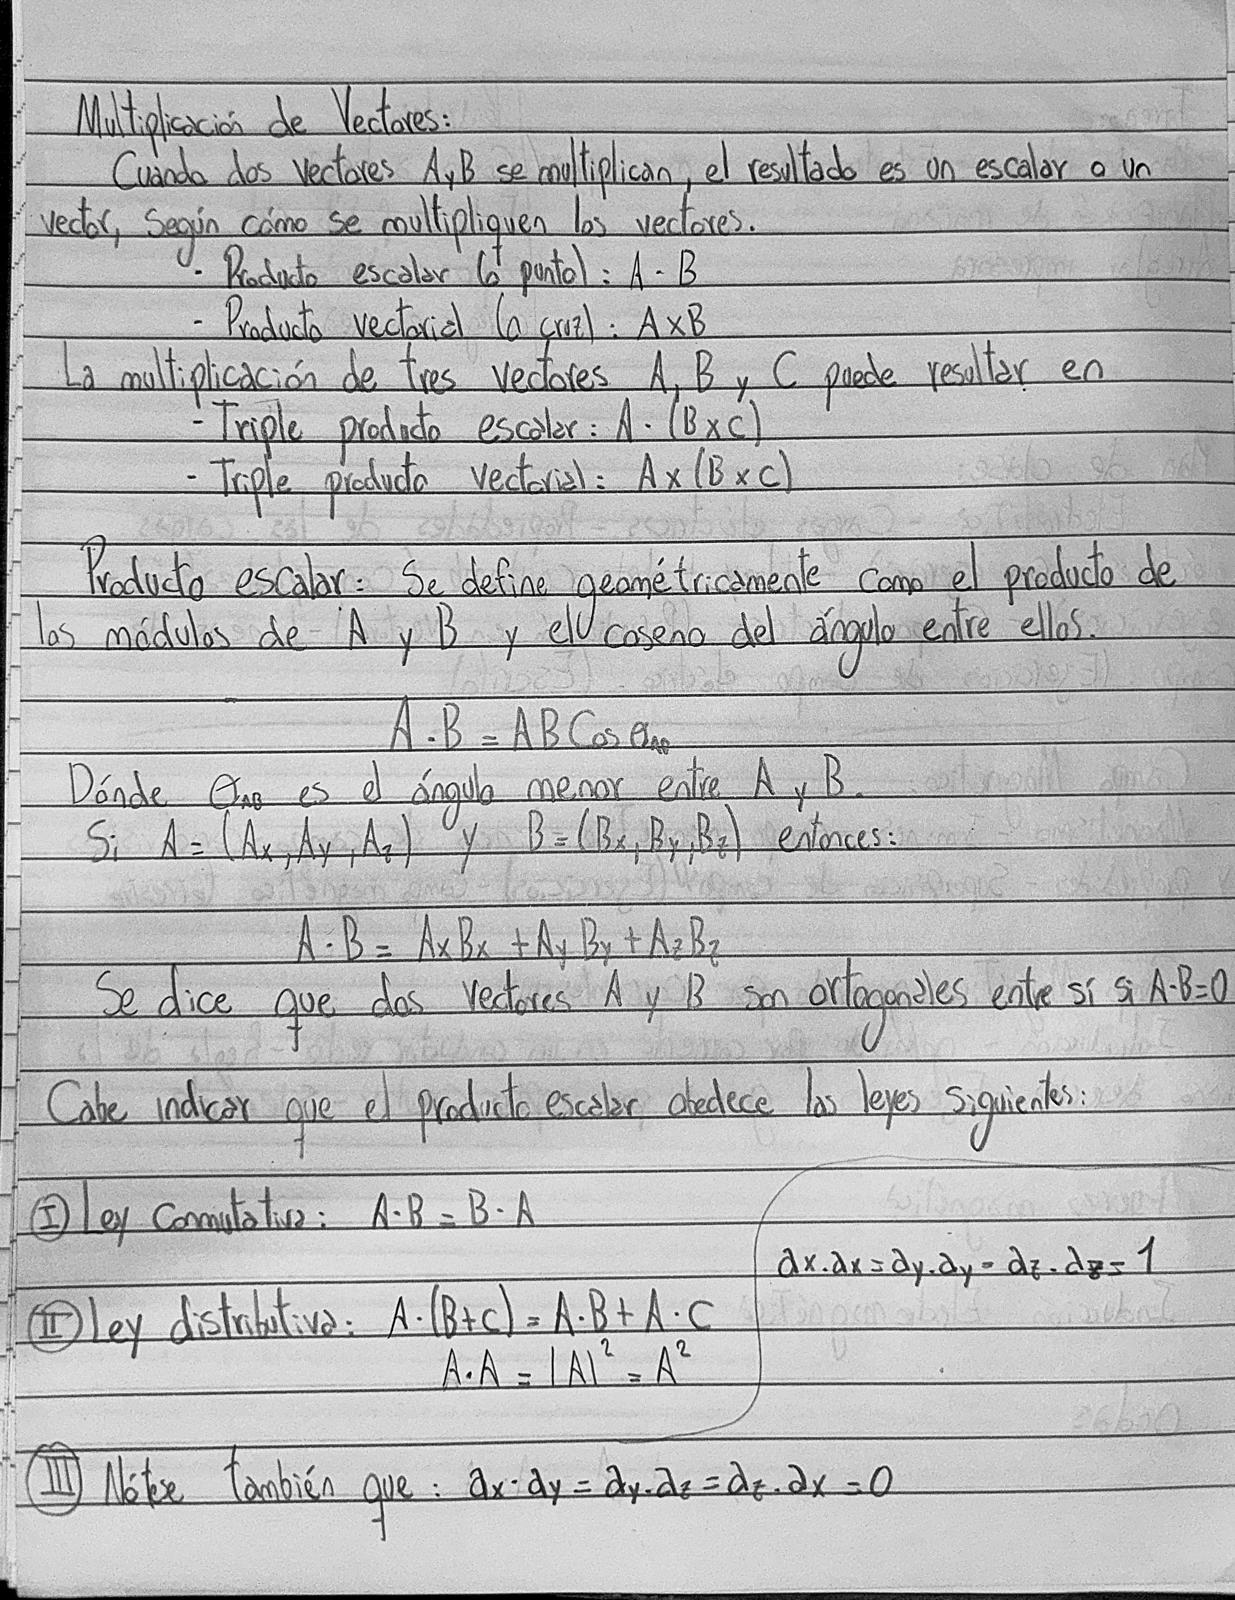 Multiplicación de Vectores:
Cuándo dos vectores A y B se multiplican, el resultado es un escalar o un
vector, según cómo se multipliquen los vectores.
- Producto escalar (o punto): A · B
- Producto vectorial (o cruz): A x B
La multiplicación de tres vectores A, B y C puede resultar en
- Triple producto escalar: A · (B x C)
- Triple producto vectorial: A x (B x C)
Producto escalar: Se define geométricamente como el producto de
los módulos de A y B y el coseno del ángulo entre ellos.
A · B = AB Cos θAB
Dónde θAB es el ángulo menor entre A y B.
Si A = (Ax, Ay, Az) y B = (Bx, By, Bz) entonces:
A · B = AxBx + AyBy + AzBz
Se dice que dos vectores A y B son ortogonales entre sí si A·B=0
Cabe indicar que el producto escalar obedece las leyes siguientes:
I Ley Conmutativa: A·B = B·A
ax·ax = ay·ay = az·az = 1
II Ley distributiva: A·(B+C) = A·B + A·C
A·A = |A|² = A²
III Nótese también que: ax·ay = ay·az = az·ax = 0